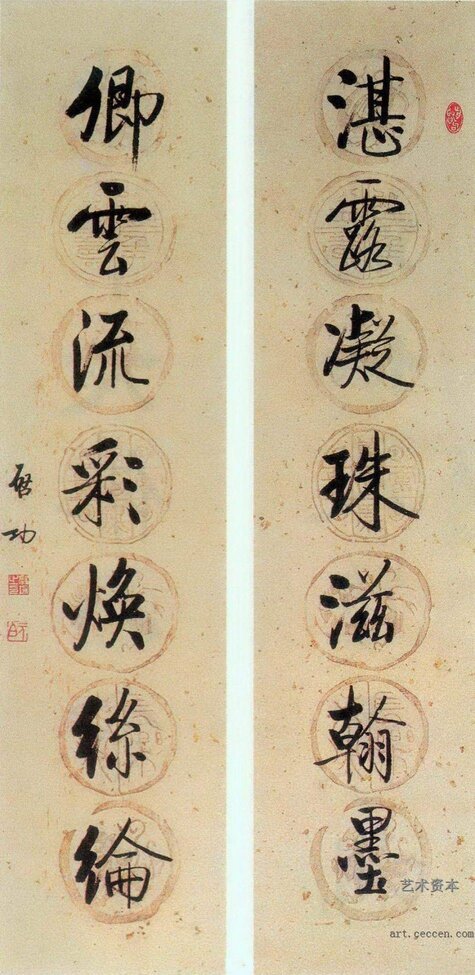 湛露凝珠滋翰墨
卿雲流彩焕絲綸
启功
艺术资本
art.ceccen.com